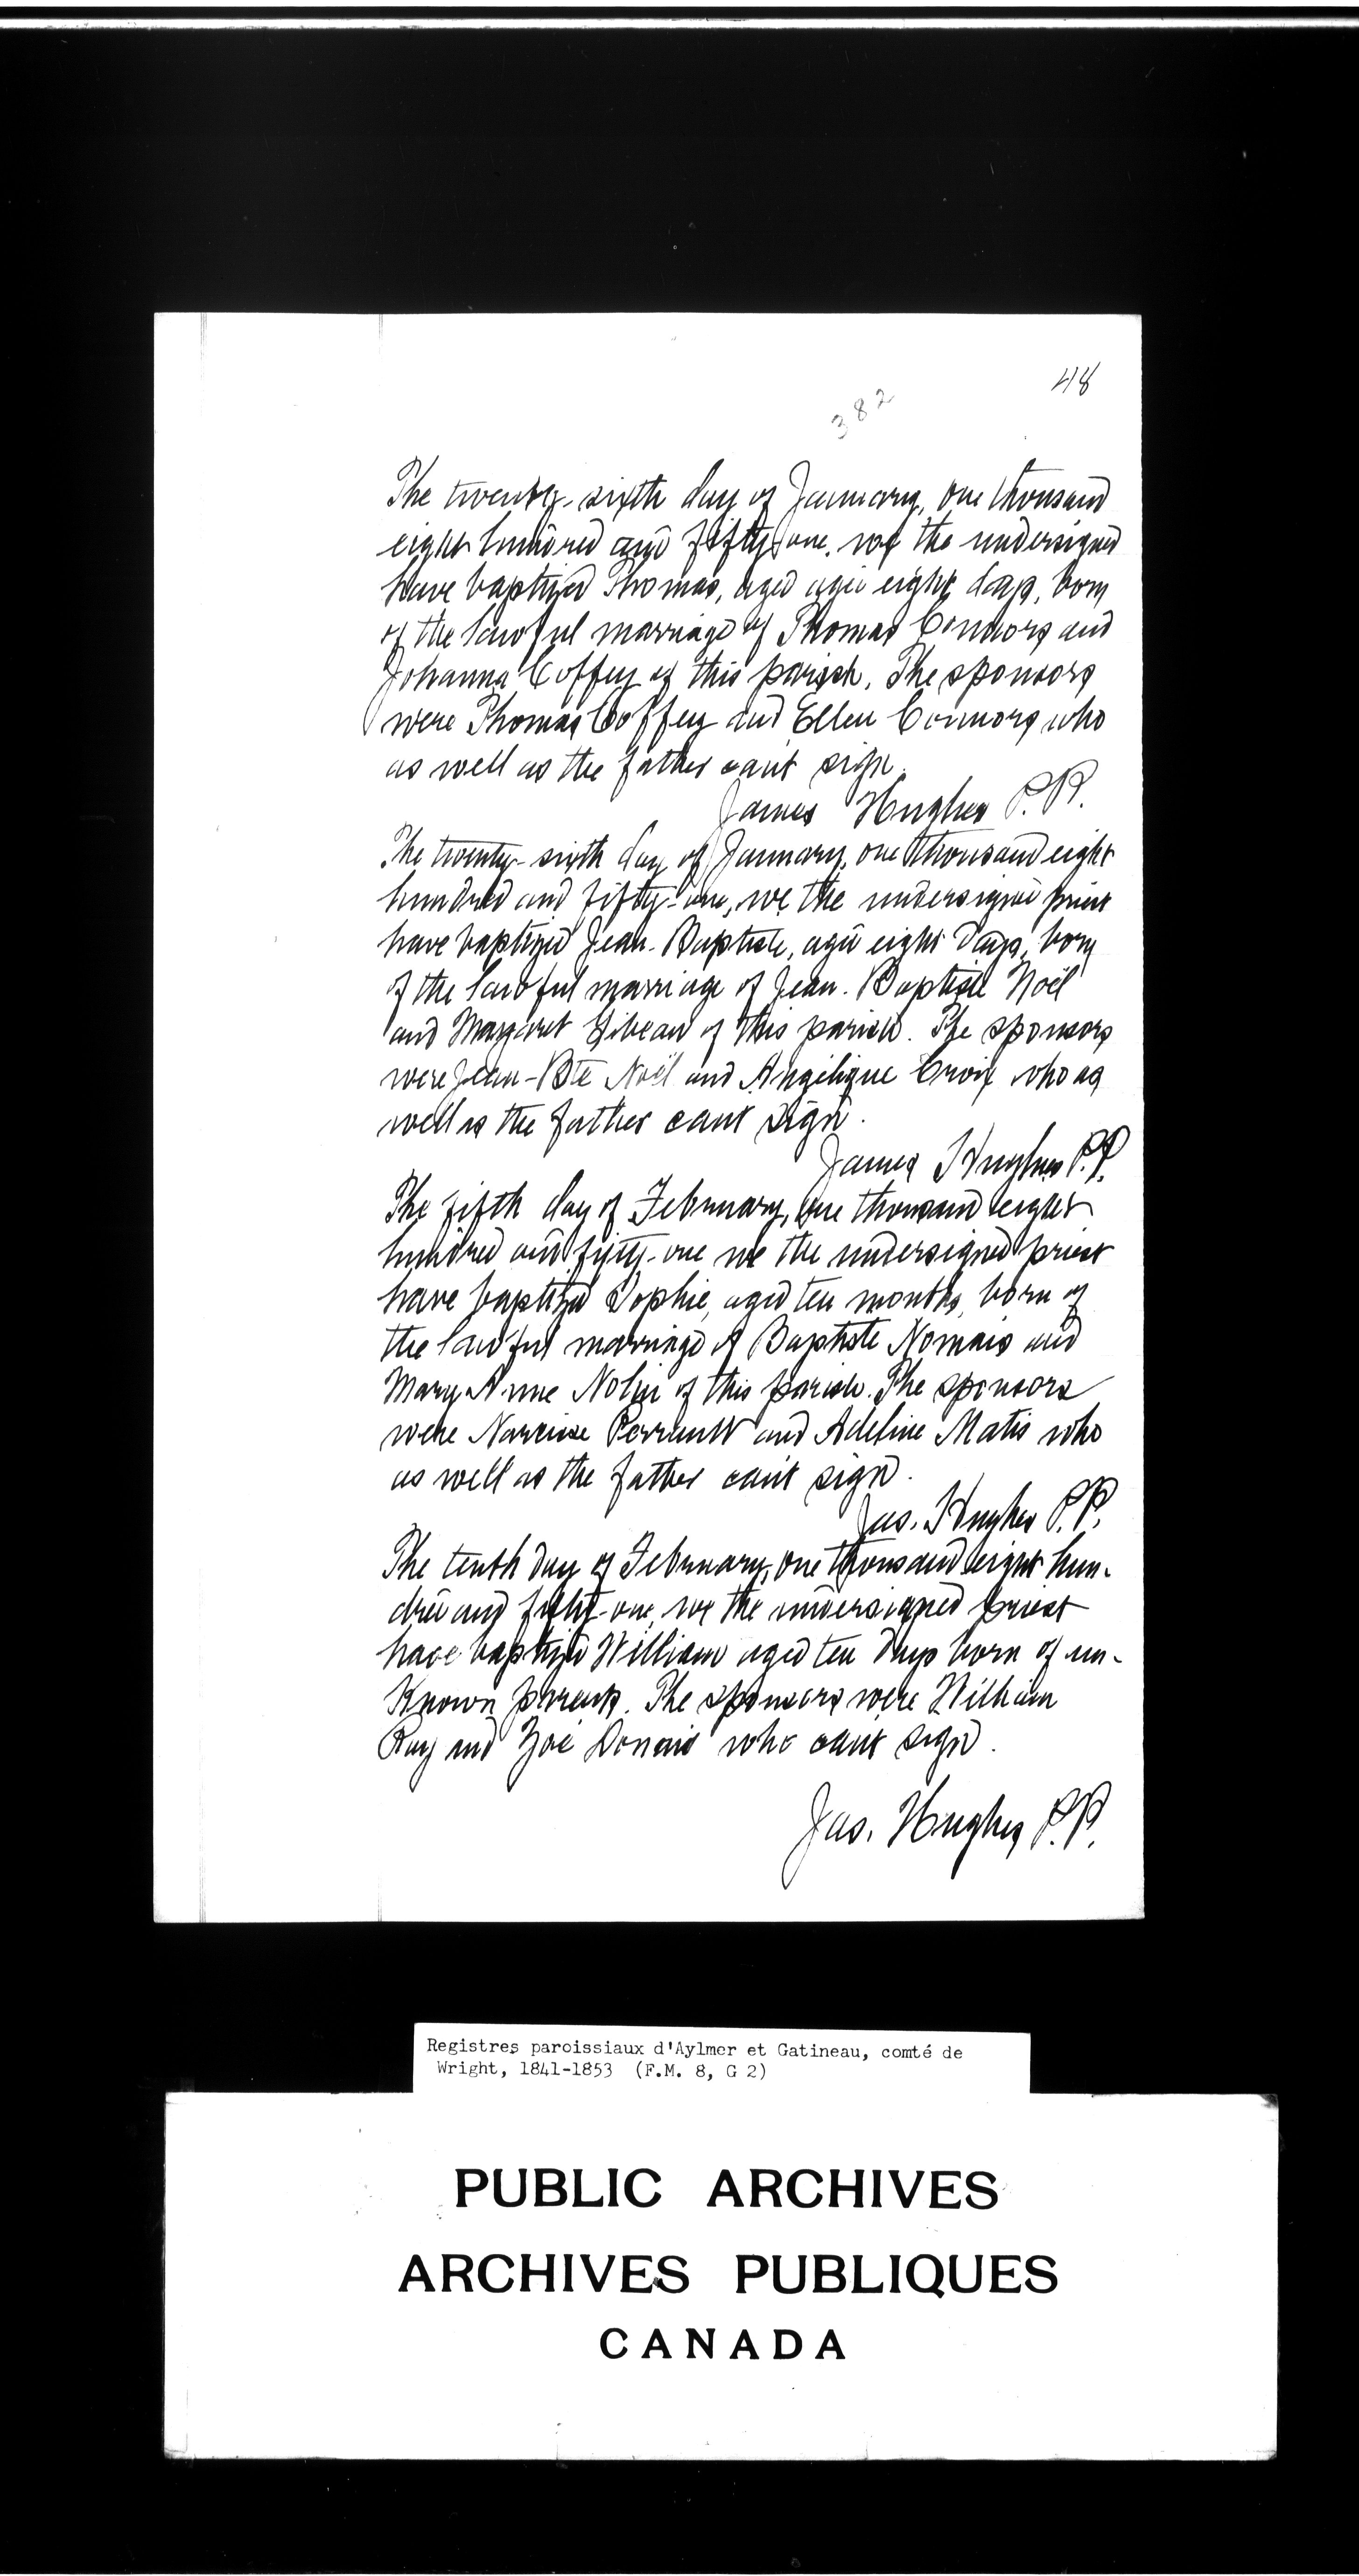 48
382
The twenty-sixth day of January, one thousand
eight hundred and fifty-one, we the undersigned
have baptized Thomas, aged aged eight days, born
of the lawful marriage of Thomas Connors and
Johanna Coffey of this parish. The sponsors
were Thomas Coffey and Ellen Connors who
as well as the father can't sign.
James Hughes P.P.
The twenty-sixth day of January, one thousand eight
hundred and fifty-one, we the undersigned priest
have baptized Jean-Baptiste, aged eight days, born
of the lawful marriage of Jean-Baptiste Noël
and Margaret of this parish. The sponsors
were Jean-Bte Noël and Angélique Croix who as
well as the father cant sign.
James Hughes P.P.
The fifth day of February, one thousand eight
hundred and fifty-one we the undersigned priest
have baptized Sophie, aged ten months, born of
the lawful marriage of Baptiste and
Mary Anne Nolin of this parish. The sponsors
were Narcisse Perrault and Adeline Matis who
as well as the father can't sign.
Jas. Hughes P.P.
The tenth day of February, one thousand eight hun-
dred and fifty-one, we the undersigned priest
have baptized William aged ten days born of un-
known parents. The sponsors were William
Ray and Zoé who cant sign.
Jas. Hughes P.P.
Registres paroissiaux d'Aylmer et Gatineau, comté de
Wright, 1841-1853 (F.M. 8, G 2)
PUBLIC ARCHIVES
ARCHIVES PUBLIQUES
CANADA